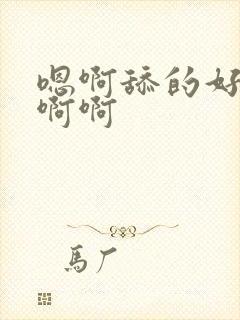 嗯啊舔的好
啊啊
馬厂